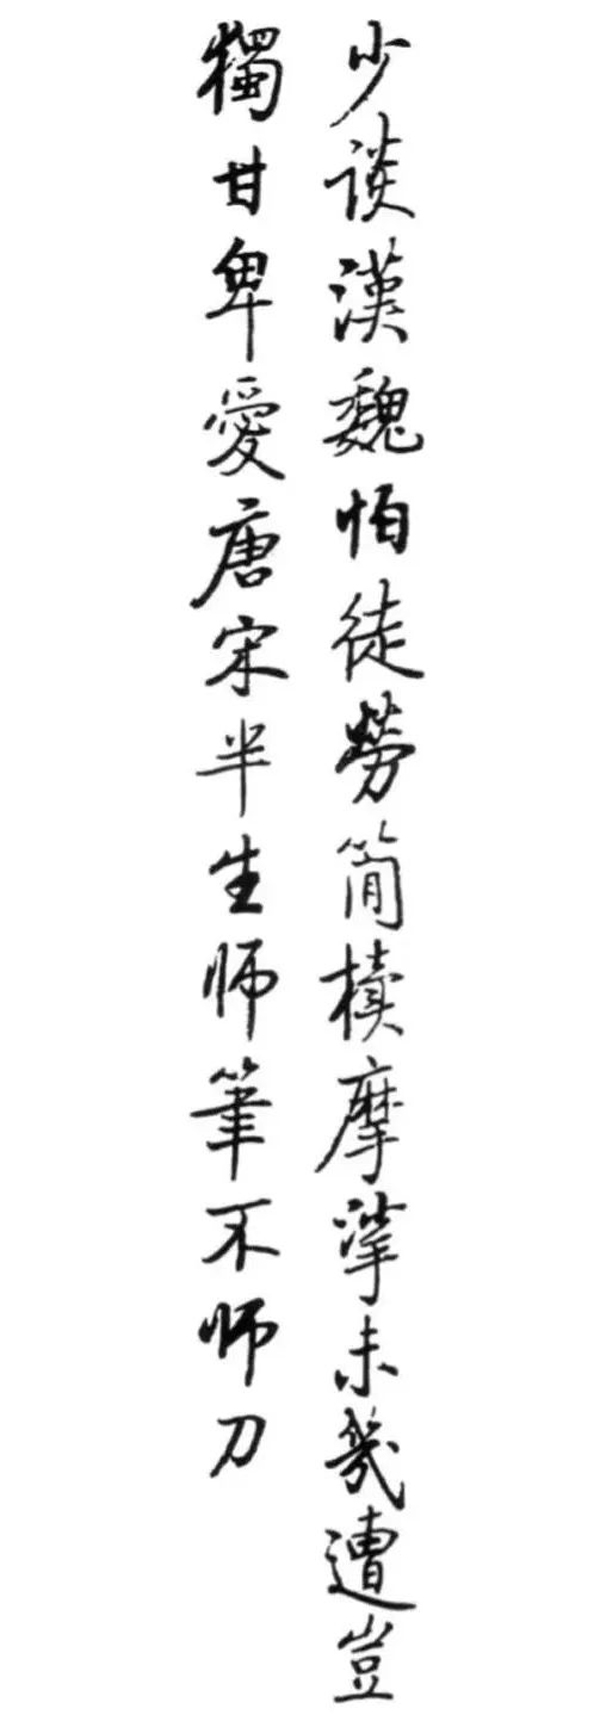 少談漢魏怕徒勞簡牘摩挲未幾遭豈
獨甘卑愛唐宋半生师筆不师刀